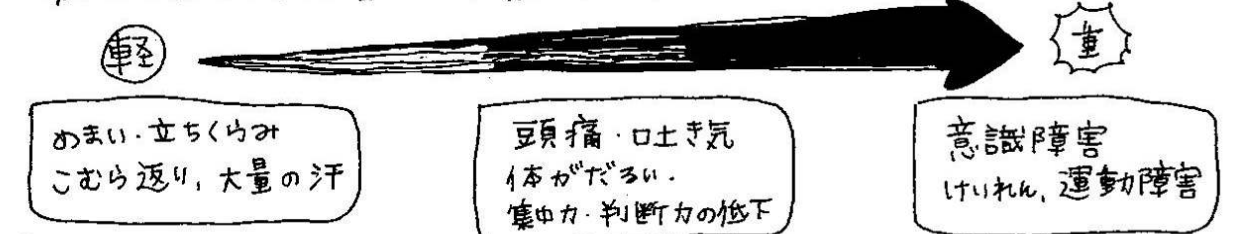 軽
重
めまい・立ちくらみ
こむら返り、大量の汗
頭痛・吐き気
体がだるい.
集中力・判断力の低下
意識障害
けいれん、運動障害